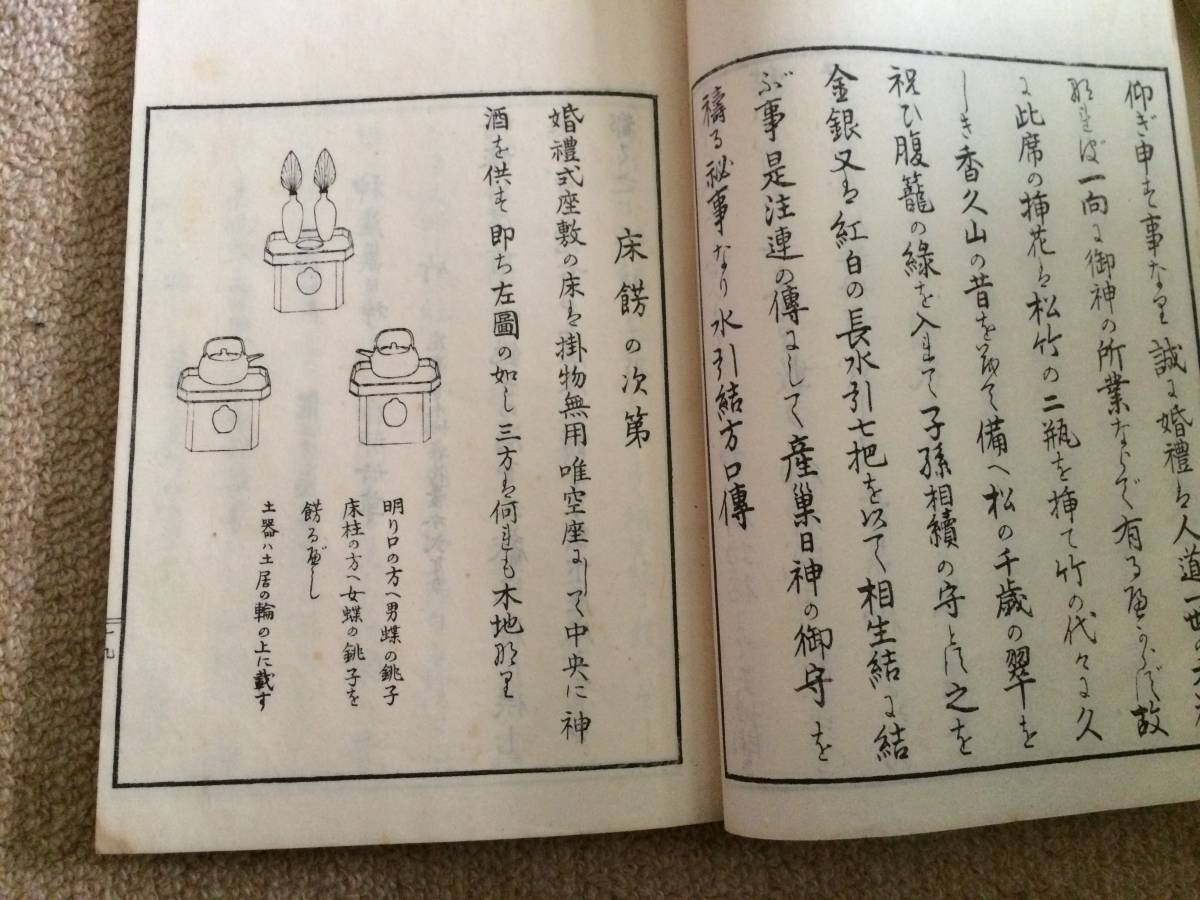 仰ぎ申す事なり誠に婚禮は人道一世の大
なれば一向に御神の所業ならで有るべからず故
に此席の挿花は松竹の二瓶を挿て竹の代々に久
しき香久山の昔を以て備へ松の千歳の翠を
祝ひ腹籠の緑を入れて子孫相續の守とし之を
金銀又は紅白の長水引七把を以て相生結に結
ぶ事是注連の傳にして産巣日神の御守を
禱る秘事なり水引結方口傳
床餝の次第
婚禮式座敷の床は掛物無用唯空座にして中央に神
酒を供す即ち左圖の如し三方は何れも木地なり
明り口の方へ男蝶の銚子
床柱の方へ女蝶の銚子を
餝るべし
土器ハ土居の輪の上に載す
十九